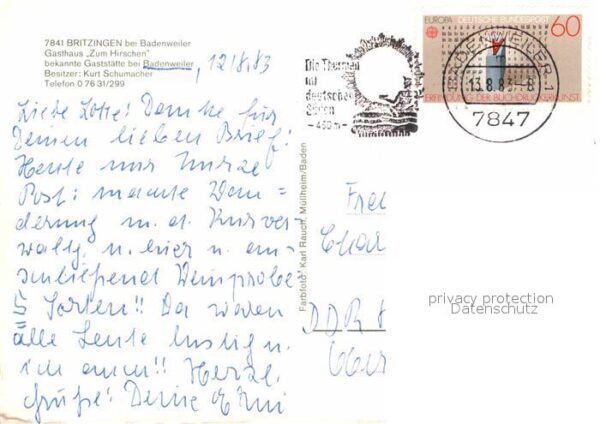 7841 BRITZINGEN bei Badenweiler
Gasthaus „Zum Hirschen"
bekannte Gaststätte bei Badenweiler, 12/8.83
Besitzer: Kurt Schumacher
Telefon 0 76 31/299
Liebe Lotte! Danke für
Deinen lieben Brief!
Heute nur kurze
Post: machte Wan=
derung m. d. Kurver
waltg. u. hier u. an=
schließend Weinprobe
5 Sorten!! Da waren
alle Leute lustig u.
ich auch!! Herzl.
Grüße! Deine Erni
Farbfoto: Karl Rauch, Müllheim/Baden
Die Thermen
im
deutschen
Süden
EUROPA DEUTSCHE BUNDESPOST 60
ERFINDUNG DER BUCHDRUCKERKUNST
BADENWEILER 1
13.8.83 - 8
7847
Frau
Char
DDR
privacy protection
Datenschutz